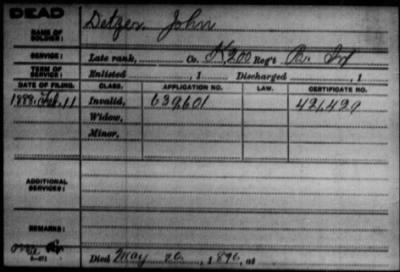 DEAD
NAME OF SOLDIER: Detzer John
SERVICE: Late rank, Co. K 200 Reg't Pa. Inf
TERM OF SERVICE: Enlisted , 1 Discharged , 1
DATE OF FILING. CLASS. APPLICATION NO. LAW. CERTIFICATE NO.
1888. Feb. 11 Invalid, 639,601 421,429
Widow,
Minor,
ADDITIONAL SERVICES:
REMARKS:
Died May 20, 1896, at